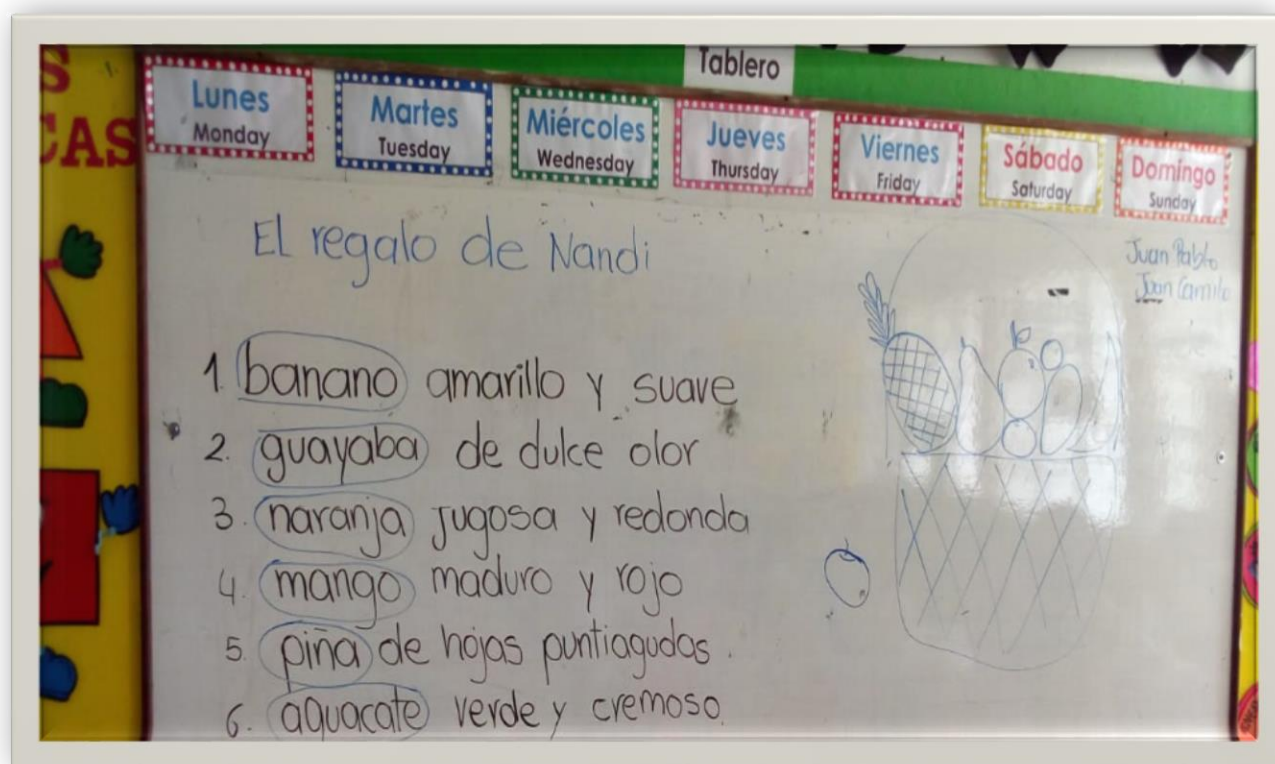 S
CAS
Tablero
Lunes
Monday
Martes
Tuesday
Miércoles
Wednesday
Jueves
Thursday
Viernes
Friday
Sábado
Saturday
Domingo
Sunday
El regalo de Nandi
Juan Pablo
Juan Camilo
1. banano amarillo y suave
2. guayaba de dulce olor
3. naranja jugosa y redonda
4. mango maduro y rojo
5. piña de hojas puntiagudas.
6. aguacate verde y cremoso.